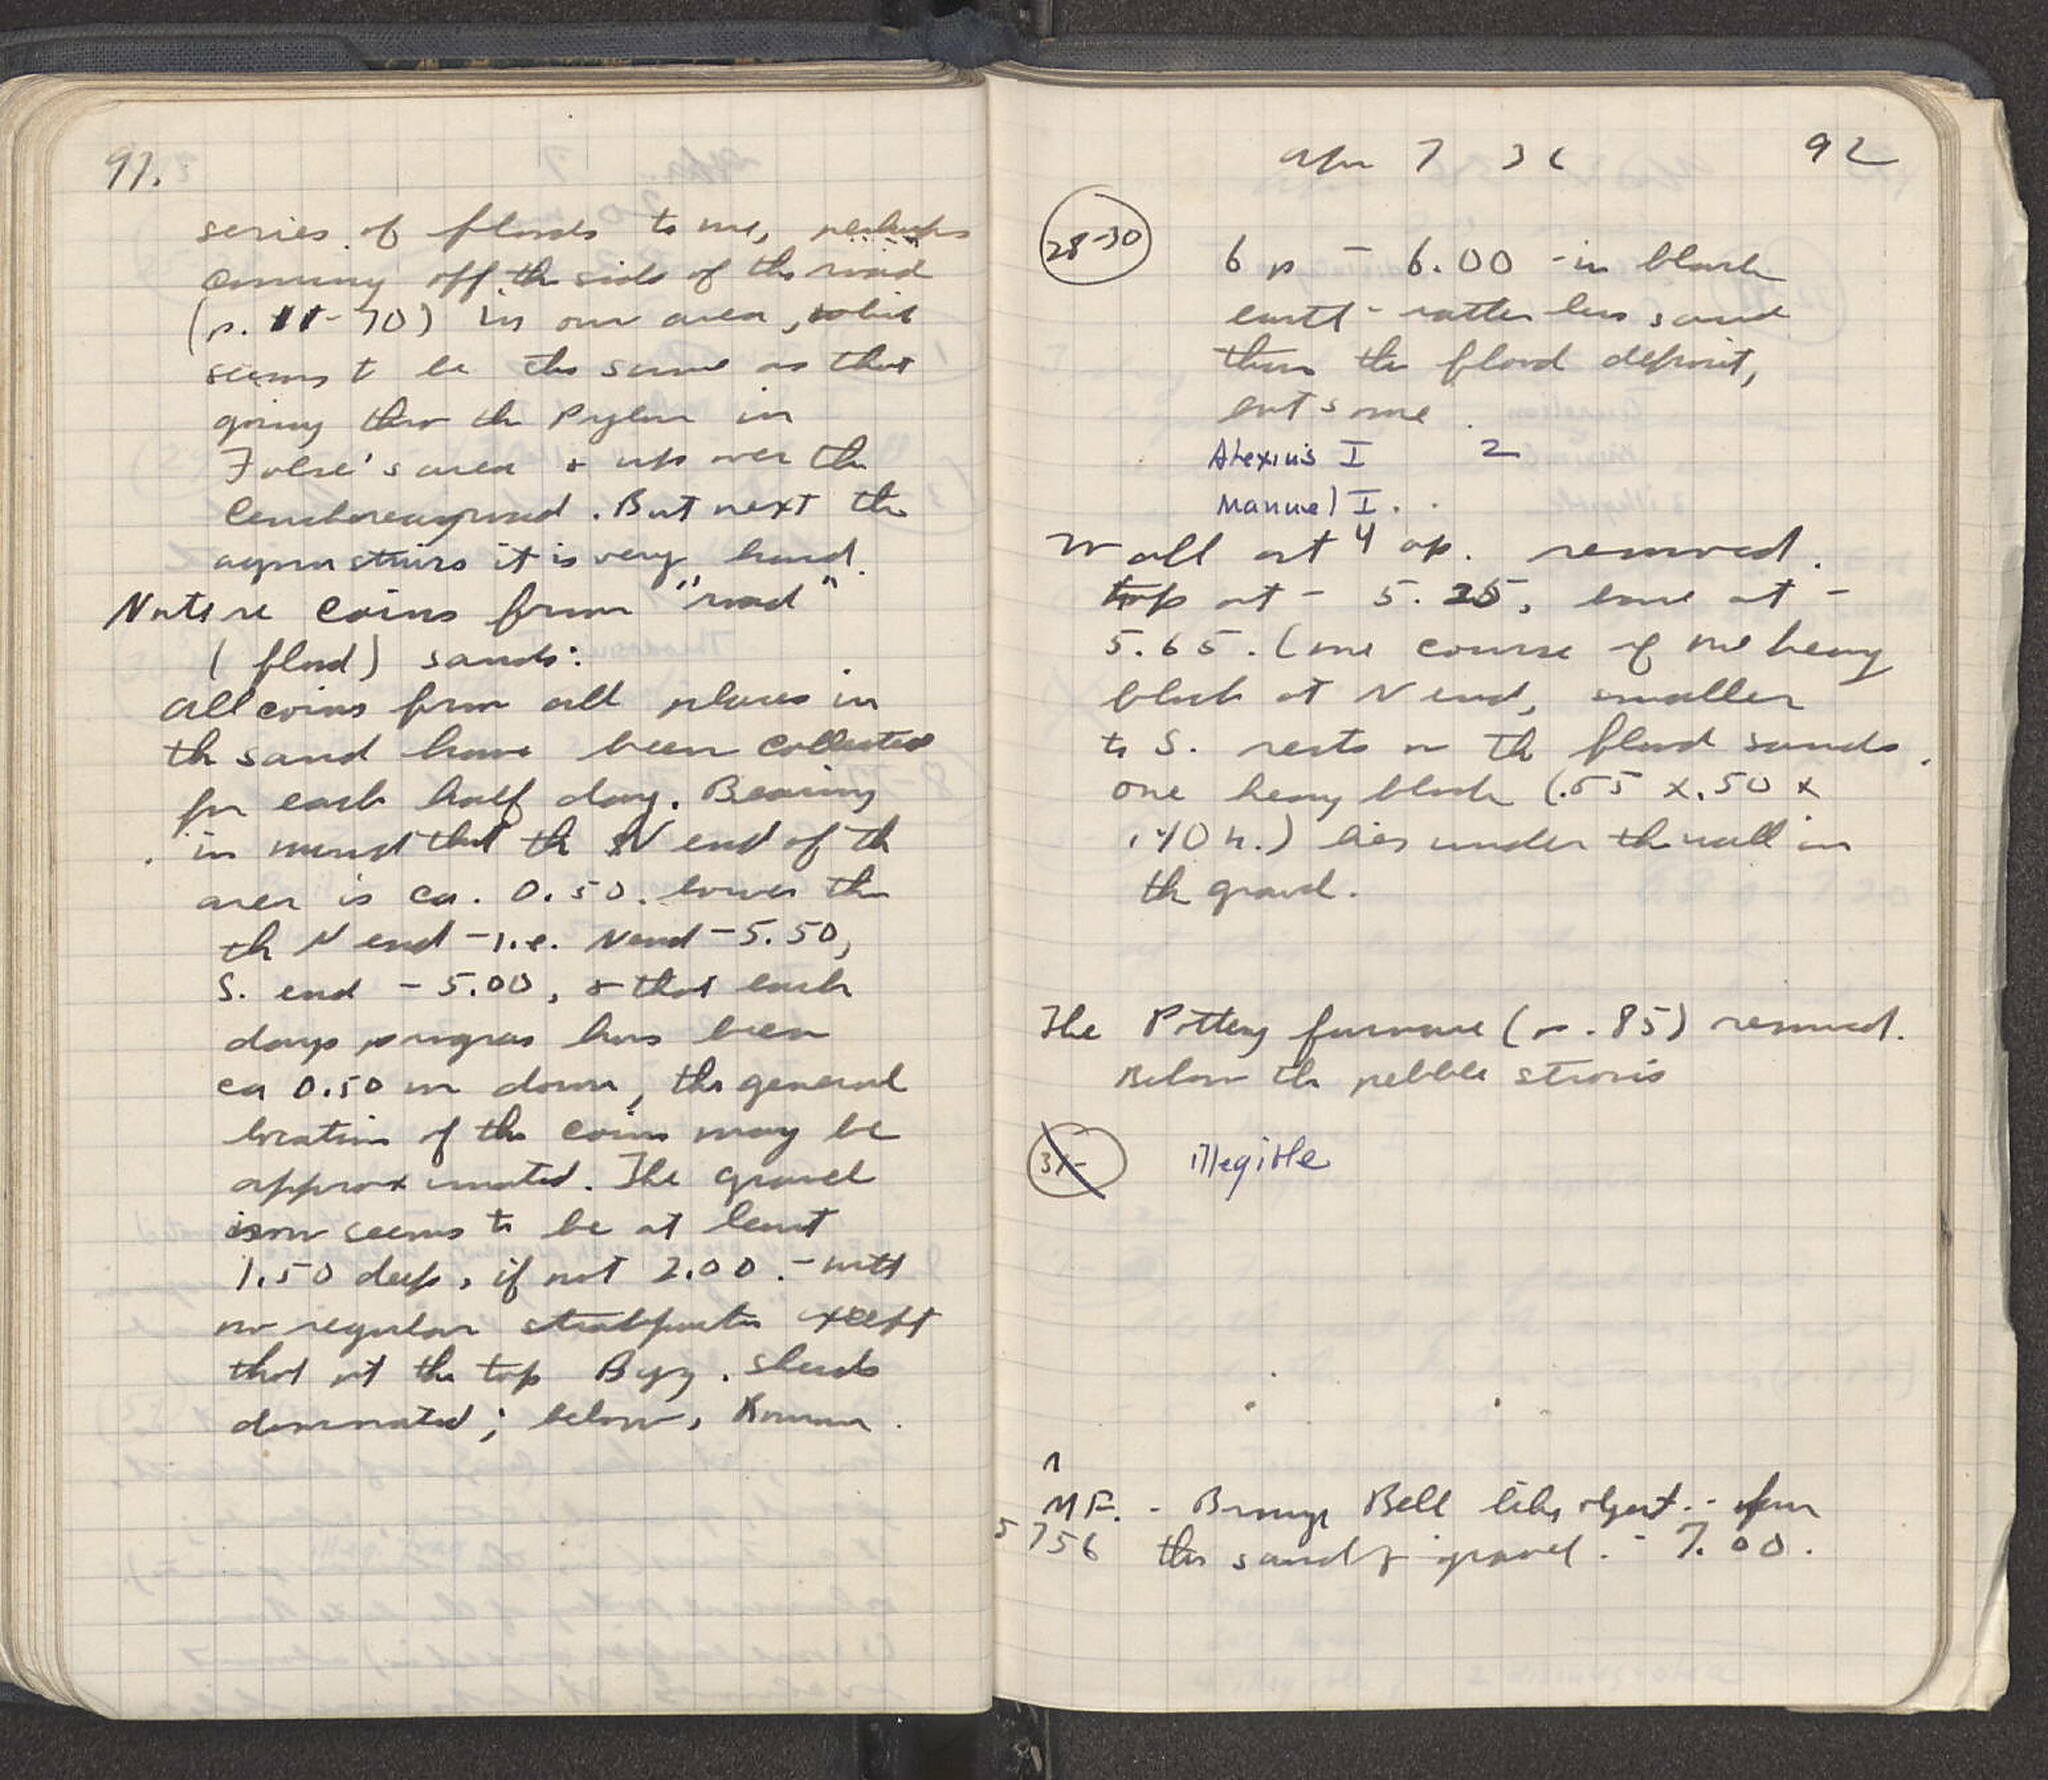 91.
series of floods to me, perhaps
coming off the side of the road
(p. 11-70) in our area, which
seems to be the same as that
going thro the Pylon in
Folse's area & up over the
Cenchreae road. But next the
agora stairs it is very hard.
Note re coins from "road"
(flood) sands:
All coins from all places in
th sand have been collected
for each half day. Bearing
in mind that the N end of th
area is ca. 0.50 lower than
th N end - i.e. N end - 5.50,
S. end - 5.00, & that each
days progress has been
ca 0.50 m down, the general
location of the coins may be
approximated. The gravel
now seems to be at least
1.50 deep, if not 2.00. - with
no regular except
that at the top Byz. sherds
dominated; below, Roman.
Apr 7 36 92
28-30 6 p - 6.00 - in black
earth - rather less sand
than the flood deposit,
but some.
Alexius I 2
Manuel I . .
Wall at 4 ap. removed.
top at - 5.25, base at -
5.65. (one course of one heavy
block at N end, smaller
to S. rests on th flood sands.
One heavy block (.55 x .50 x
.40 h.) lies under th wall in
th gravel.
The Pottery furnace (p. 85) removed.
Below th pebble strosis
31- illegible
1
MF. - Bronze Bell like object. - from
5756 the sandy gravel. - 7.00.